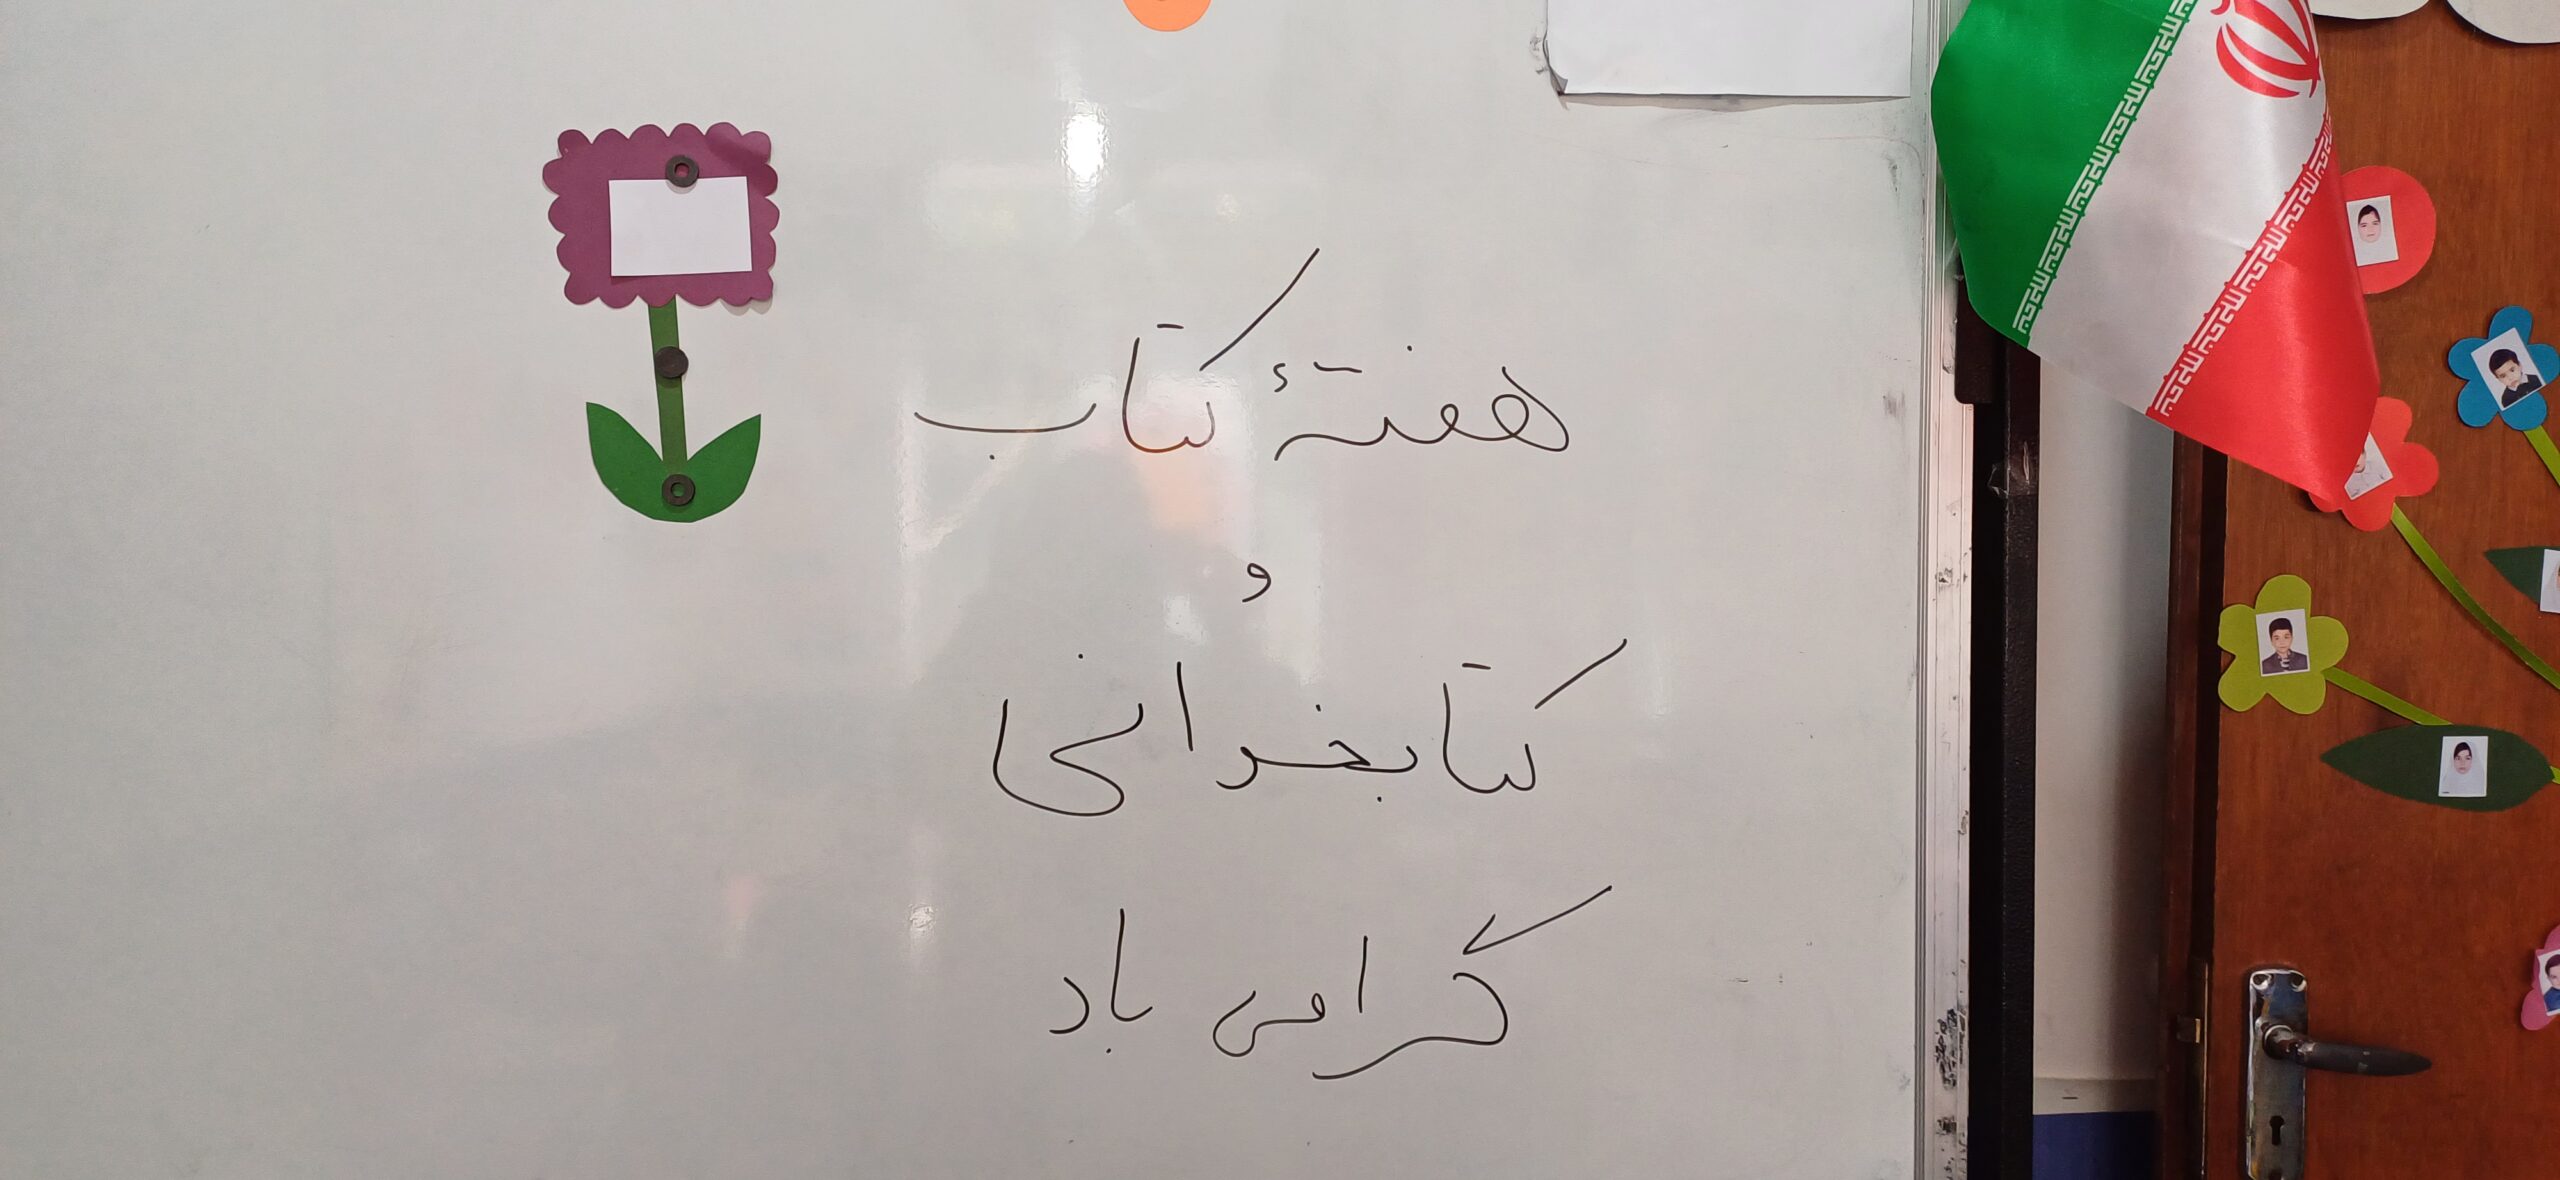 هفتهٔ کتاب
و
کتابخوانی
گرامی باد